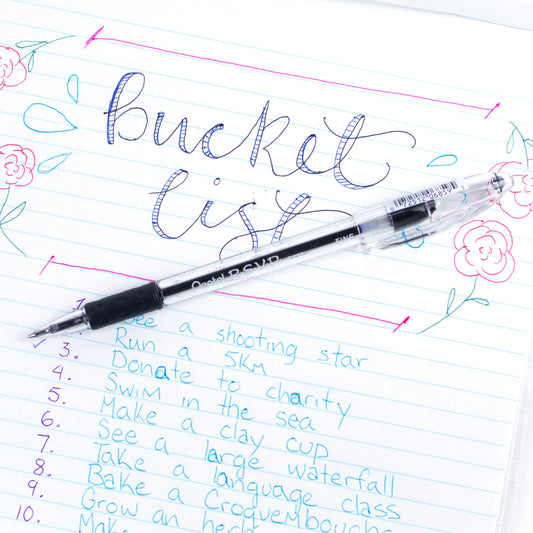 bucket
list
FINE
Pentel R.S.V.P.
1. See a shooting star
Run a 5KM
3. Donate to charity
4. Swim in the sea
5. Make a clay cup
6. See a large waterfall
7. Take a language class
8. Bake a Croquembouche
9. Grow an herb
10. Make